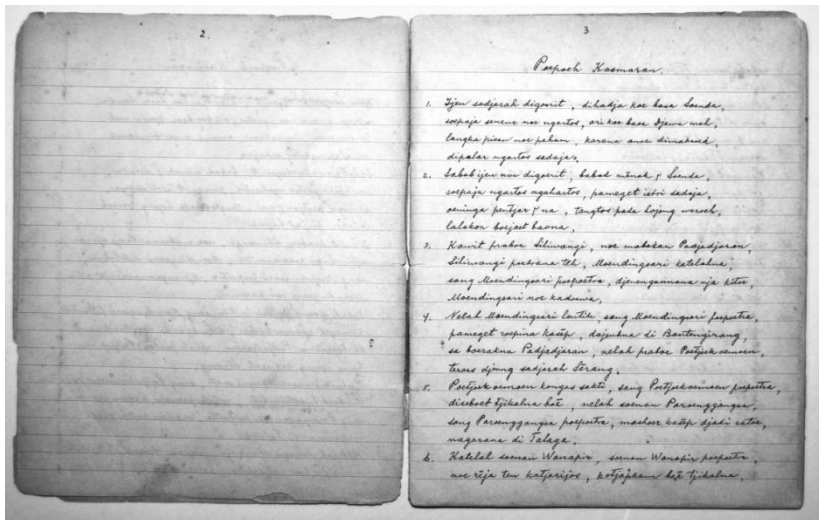 2.
3
Poepoeh Kasmaran.
1. Ijeu sadjarah digoerit, dihadja koe basa Soenda,
soepaja seueur noe ngartos, ari koe basa Djawa mah,
langka pisan noe paham, karana anoe dimaksoed,
dipalar ngartos sadaja.
2. Sabab ijeu noe digoerit, babad mênak Soenda,
soepaja ngartos ngahartos, pameget istri sadaja,
oeninga pentjar na, tangtos pada lojong weroeh,
lalakon boejoet baona.
3. Kawit praboe Siliwangi, noe mabokan Padjadjaran,
Siliwangi poetrana teh, Moendingsari katelahna,
sang Moendingsari poepoetra, djenengannana nja kitoe,
Moendingsari noe kadoewa.
4. Nelah Moendingsari leutik, sang Moendingsari poepoetra,
pameget roepina kasép, dajeuhna di Bantengirang,
sa boerakna Padjadjaran, nelah praboe Poetjoek oemoen,
teroes djeung sadjarah Sérang.
5. Poetjoek oemoen kongas sakti, sang Poetjoekoemoen poepoetra,
diseboet tjikalna baé, nelah soenan Paroenggangsa,
sang Paroenggangsa poepoetra, mashoer kasép djadi ratoe,
nagarana di Talaga.
6. Katelah soenan Wanapir, soenan Wanapir poepoetra,
noe réja teu katjarijos, kotjapkeun baé tjikalna,